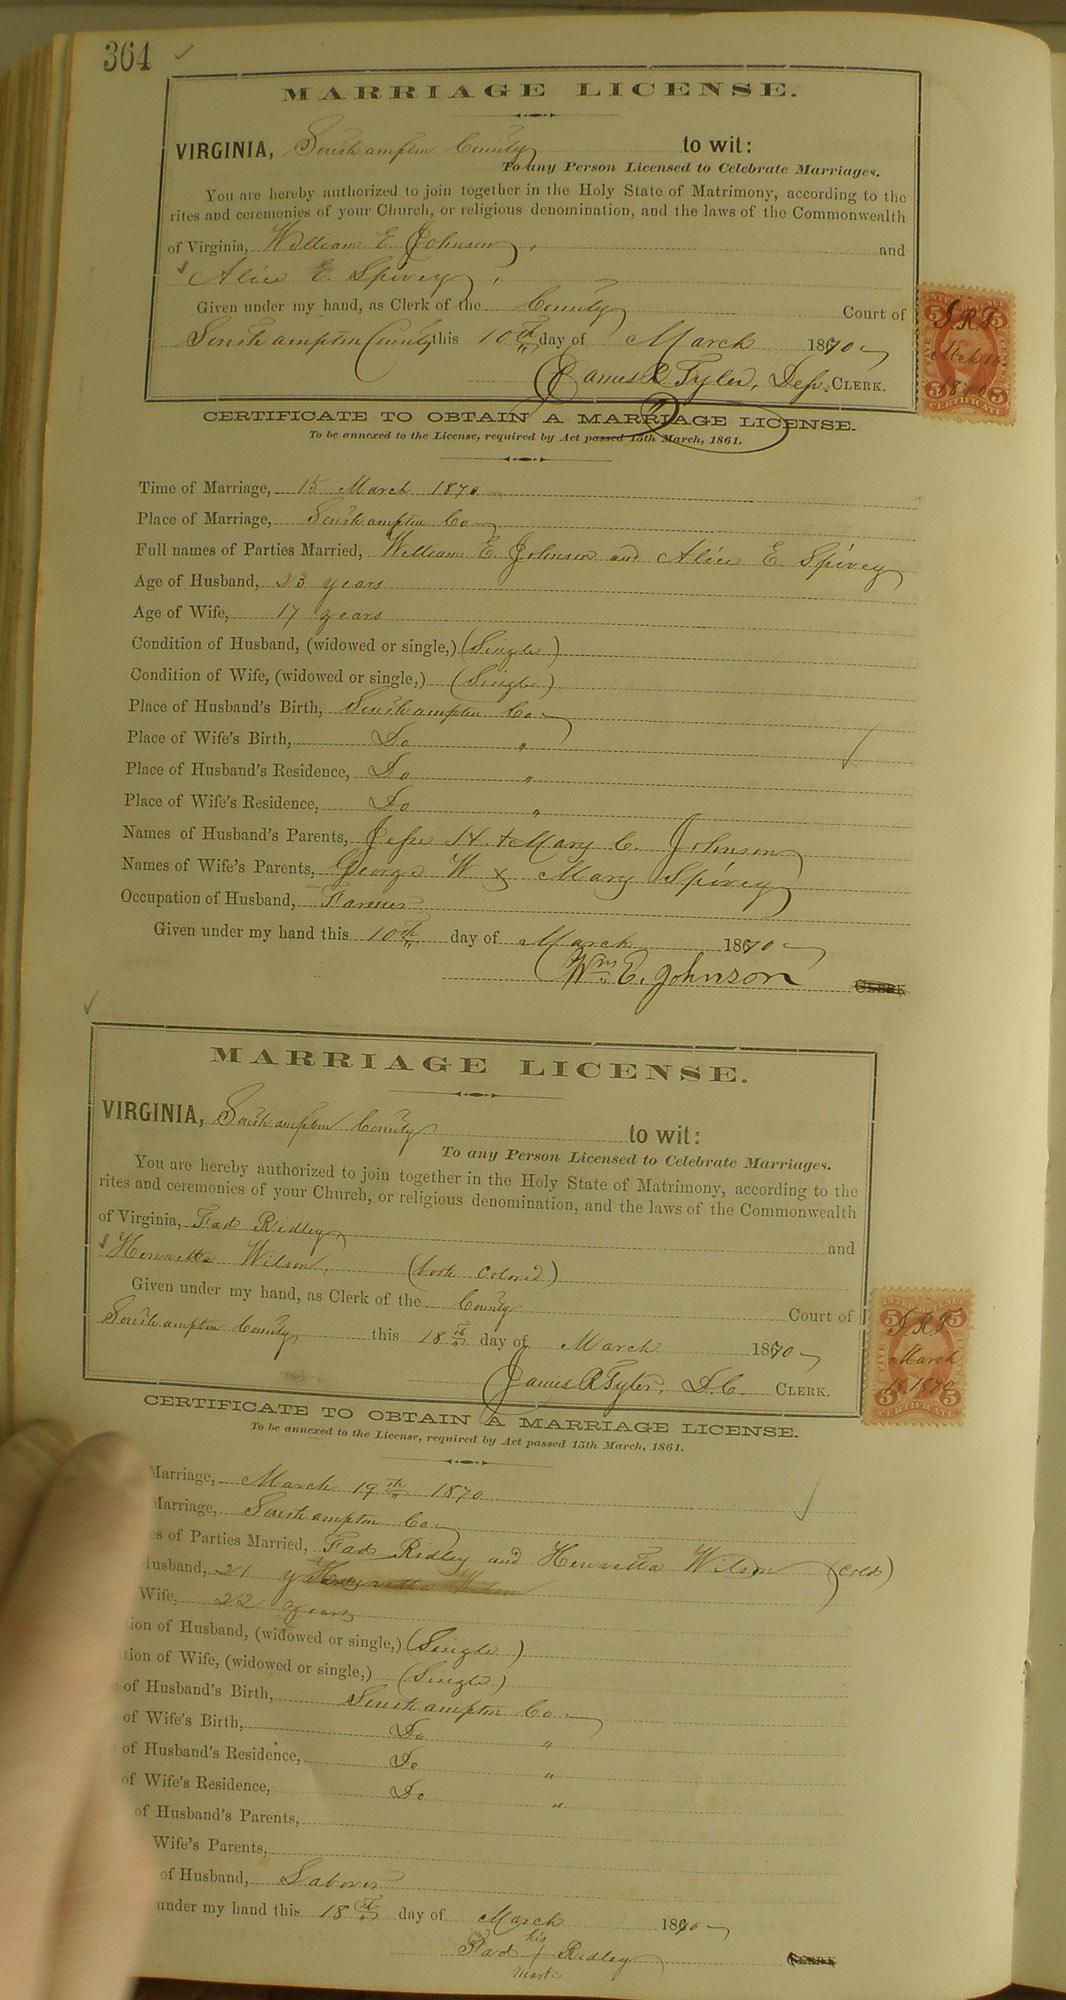 364
MARRIAGE LICENSE.
VIRGINIA, Southampton County to wit:
To any Person Licensed to Celebrate Marriages.
You are hereby authorized to join together in the Holy State of Matrimony, according to the
rites and ceremonies of your Church, or religious denomination, and the laws of the Commonwealth
of Virginia, William E. Johnson, and
Alice E. Spivey,
Given under my hand, as Clerk of the County Court of
Southampton County this 10th day of March 1870
James R Tyler, Dep. CLERK.
5 5
J.R.T
Mch 10
1870
5 5
CERTIFICATE
CERTIFICATE TO OBTAIN A MARRIAGE LICENSE.
To be annexed to the License, required by Act passed 15th March, 1861.
Time of Marriage, 15 March 1870
Place of Marriage, Southampton Co
Full names of Parties Married, William E. Johnson and Alice E Spivey
Age of Husband, 23 years
Age of Wife, 17 years
Condition of Husband, (widowed or single,) (Single)
Condition of Wife, (widowed or single,) (Single)
Place of Husband's Birth, Southampton Co
Place of Wife's Birth, Do "
Place of Husband's Residence, Do "
Place of Wife's Residence, Do "
Names of Husband's Parents, Jesse H. + Mary C. Johnson
Names of Wife's Parents, George W & Mary Spivey
Occupation of Husband, Farmer
Given under my hand this 10th day of March 1870
Wm. E. Johnson CLERK
MARRIAGE LICENSE.
VIRGINIA, Southampton County to wit:
To any Person Licensed to Celebrate Marriages.
You are hereby authorized to join together in the Holy State of Matrimony, according to the
rites and ceremonies of your Church, or religious denomination, and the laws of the Commonwealth
of Virginia, Fad Ridley, and
Henrietta Wilson, (both colored)
Given under my hand, as Clerk of the County Court of
Southampton County this 18th day of March 1870
James R Tyler, D.C. CLERK.
5 5
J.R.T
March
18 1870
5 5
CERTIFICATE
CERTIFICATE TO OBTAIN A MARRIAGE LICENSE.
To be annexed to the License, required by Act passed 15th March, 1861.
Marriage, March 19th 1870
Marriage, Southampton Co
s of Parties Married, Fad Ridley and Henrietta Wilson (cold)
usband, 21 years
Wife, 22 years
ion of Husband, (widowed or single,) (Single)
tion of Wife, (widowed or single,) (Single)
of Husband's Birth, Southampton Co
of Wife's Birth, Do "
of Husband's Residence, Do "
of Wife's Residence, Do "
of Husband's Parents,
Wife's Parents,
of Husband, Laborer
under my hand this 18th day of March 1870
his
Fad + Ridley CLERK
mark